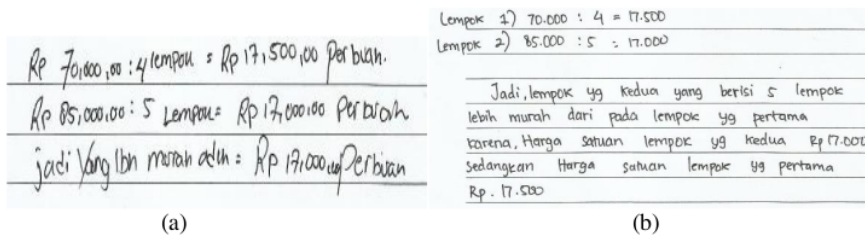 Rp 70,000,00 : 4 lempou = Rp 17,500,00 Perbuah.
Rp 85,000.00 : 5 Lempou = Rp 17,000.00 Perbuah
jadi Yang lbh murah adlh = Rp 17,000,00 Perbuah
(a)
Lempok 1) 70.000 : 4 = 17.500
Lempok 2) 85.000 : 5 = 17.000
Jadi, lempok yg kedua yang berisi 5 lempok
lebih murah dari pada lempok yg pertama
karena, Harga satuan lempok yg kedua Rp 17.000
sedangkan Harga satuan lempok yg pertama
Rp. 17.500
(b)